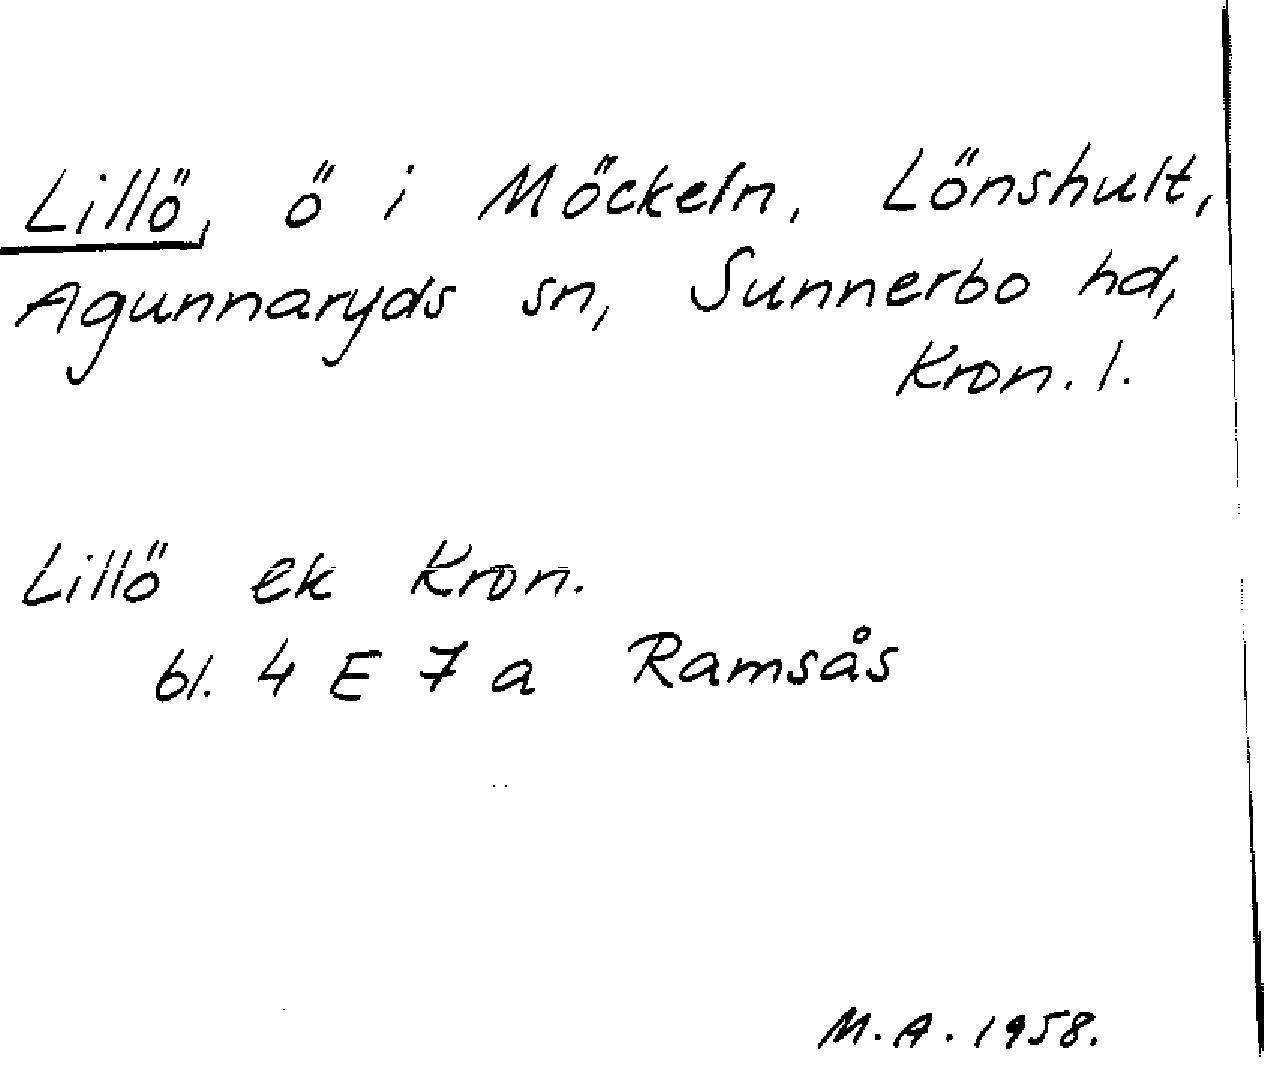 Lillö, ö i Möckeln, Lönshult,
Agunnaryds sn, Sunnerbo hd,
Kron. l.
Lillö ek Kron.
bl. 4 E 7 a Ramsås
M.A. 1958.